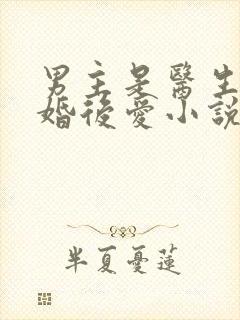 男主是醫生
婚後愛小說
半夏憂蓮